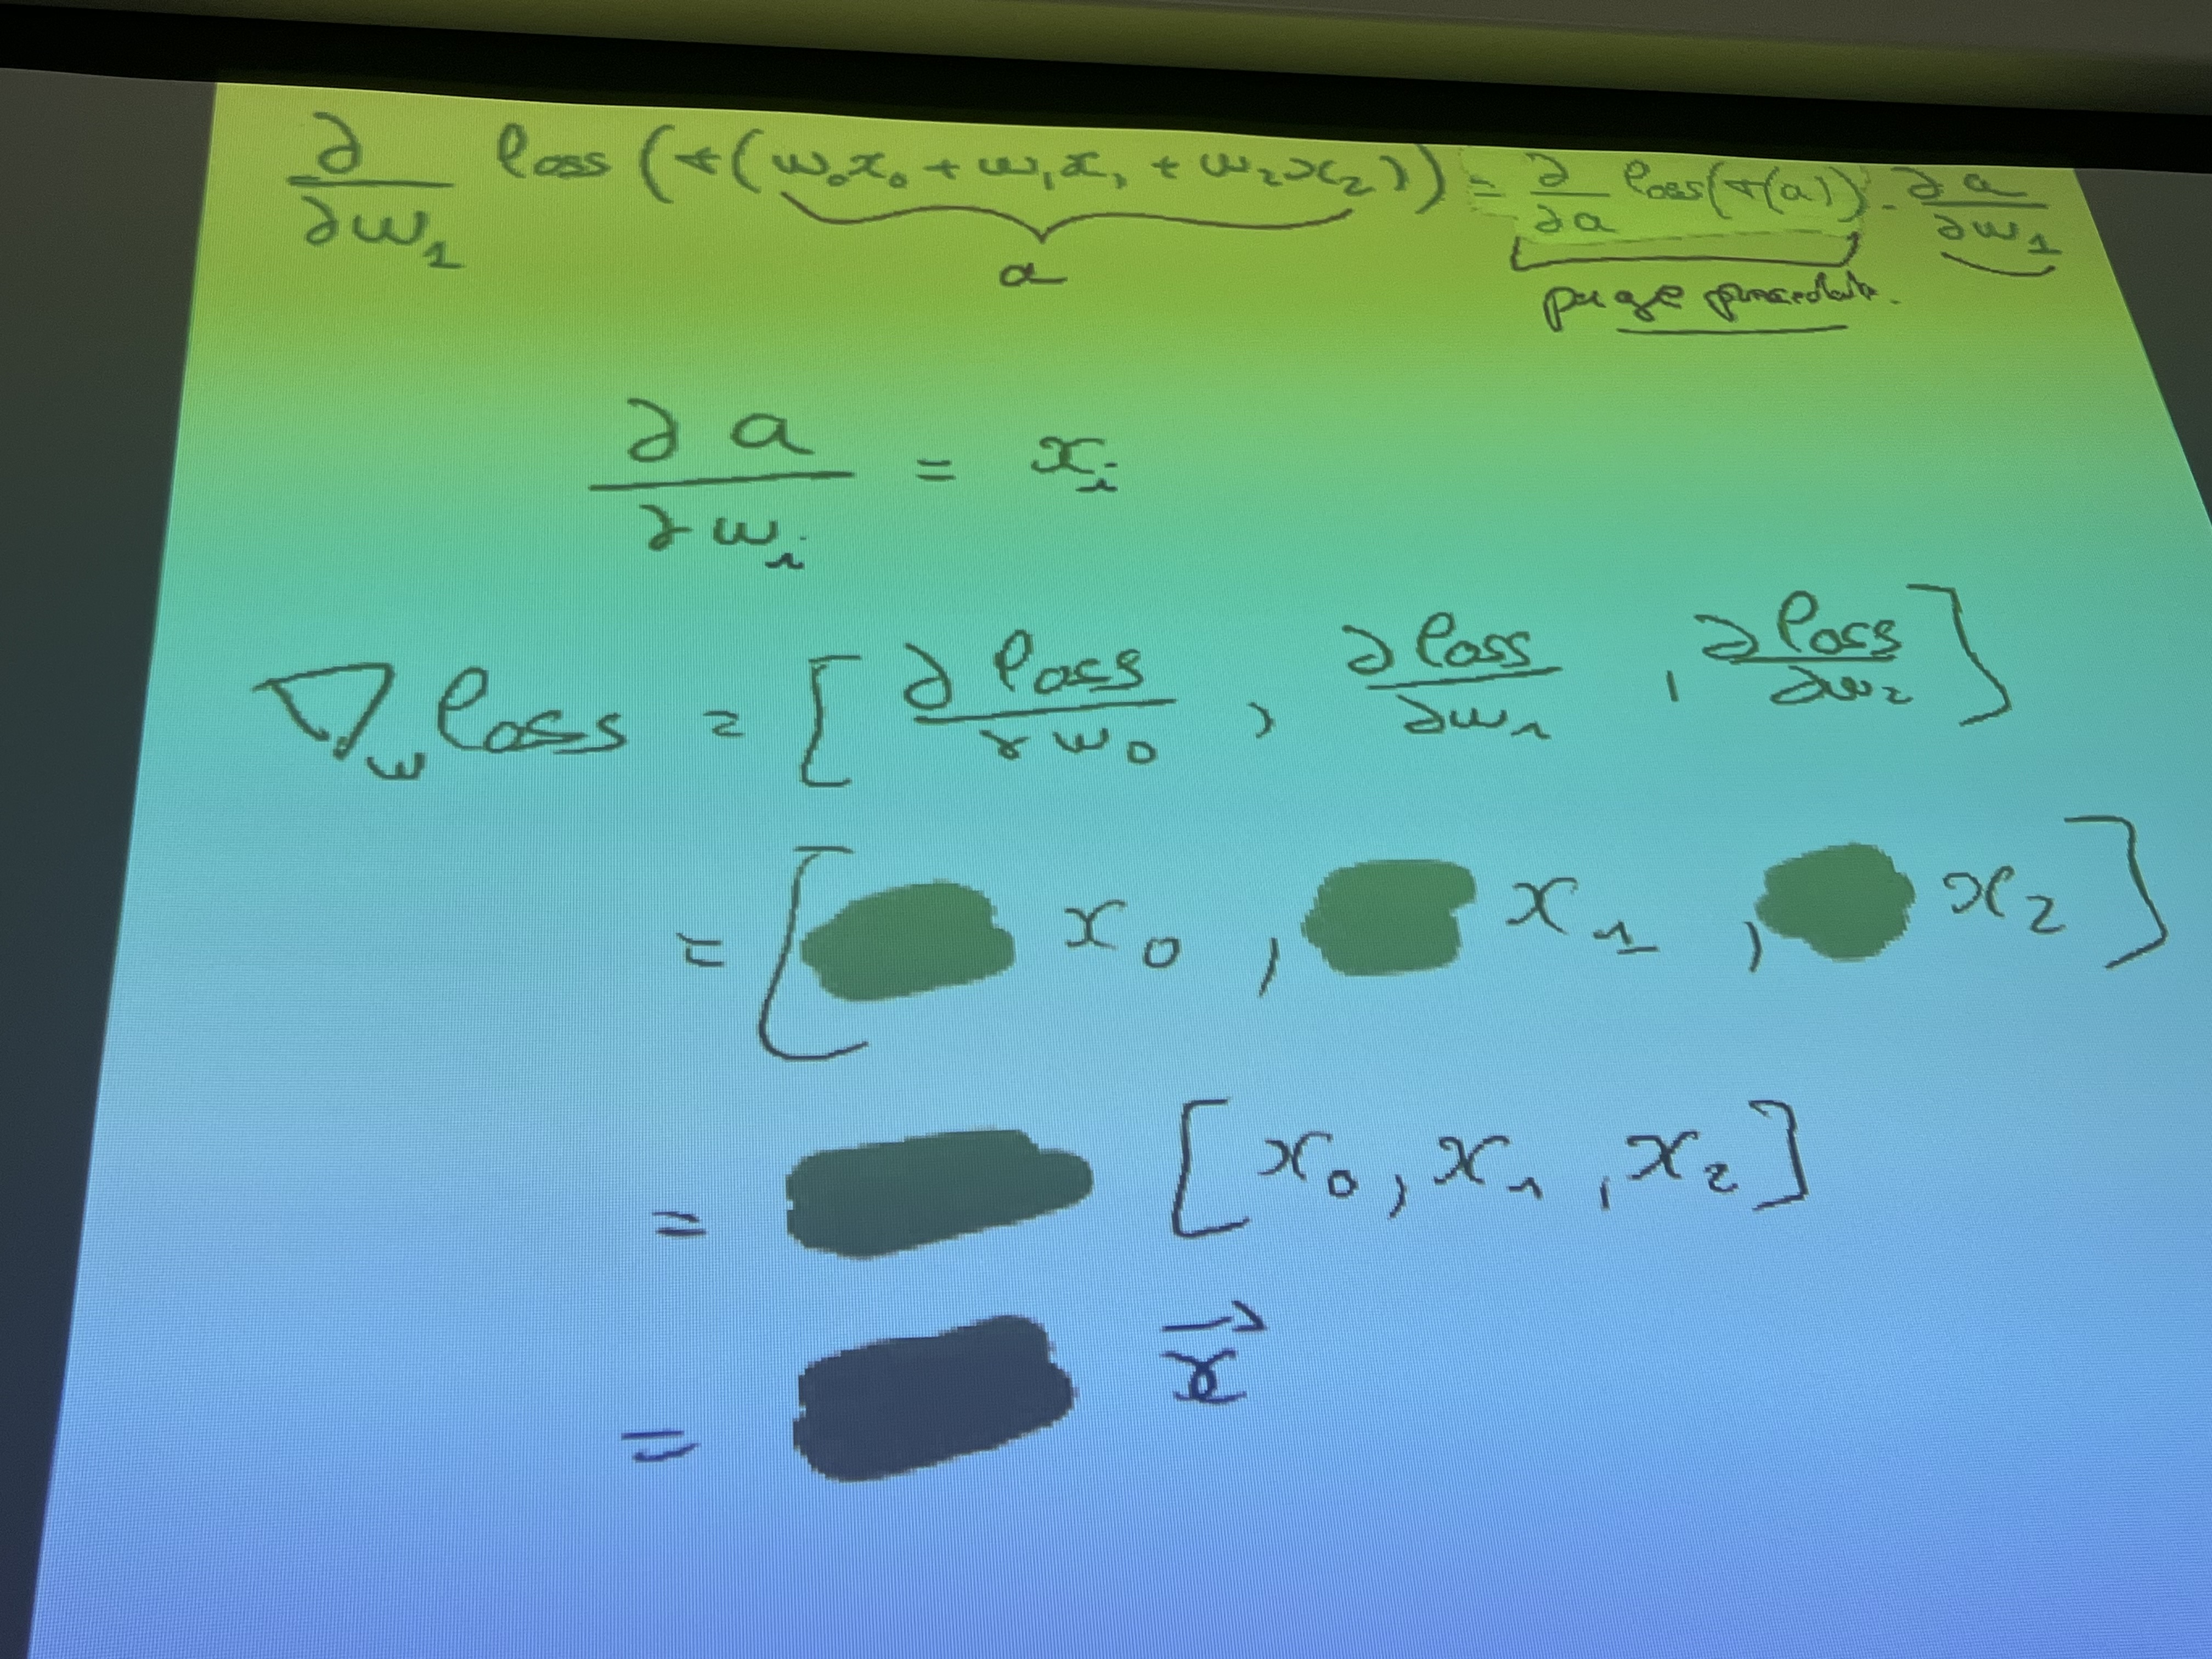 ∂/∂w₁ loss(σ(w₀x₀ + w₁x₁ + w₂x₂)) = ∂/∂a loss(σ(a)) · ∂a/∂w₁
a
page
∂a/∂wᵢ = xᵢ
∇w loss = [∂loss/∂w₀, ∂loss/∂w₁, ∂loss/∂w₂]
= [ x₀, x₁, x₂]
= [x₀, x₁, x₂]
= x⃗